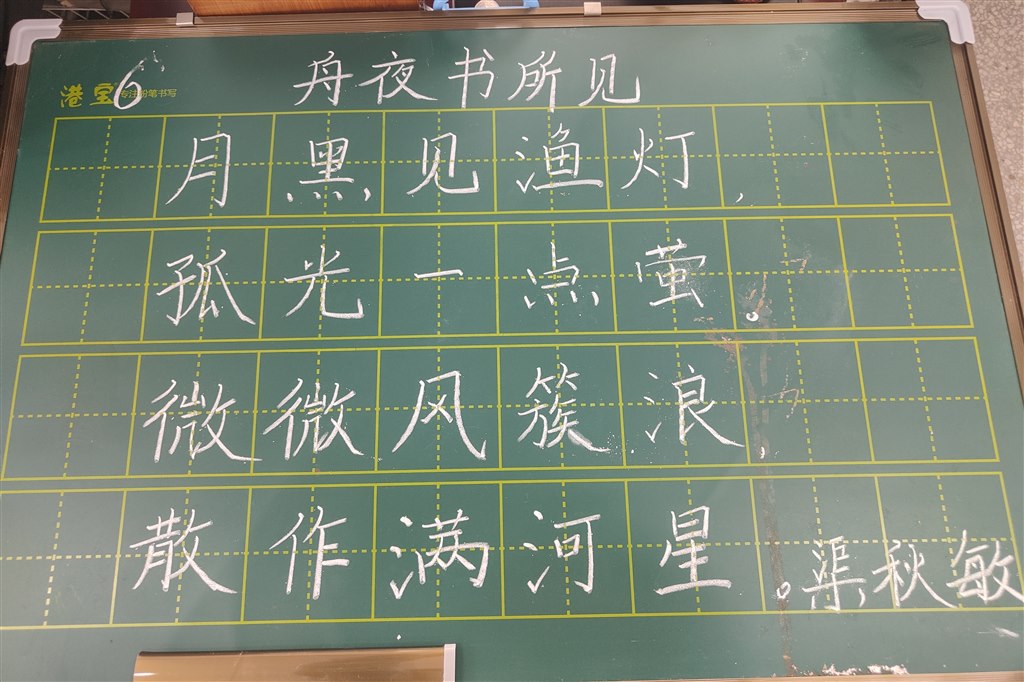 舟夜书所见
港宝 专注粉笔书写
6
月黑见渔灯，
孤光一点萤。
微微风簇浪，
散作满河星。
渠秋敏